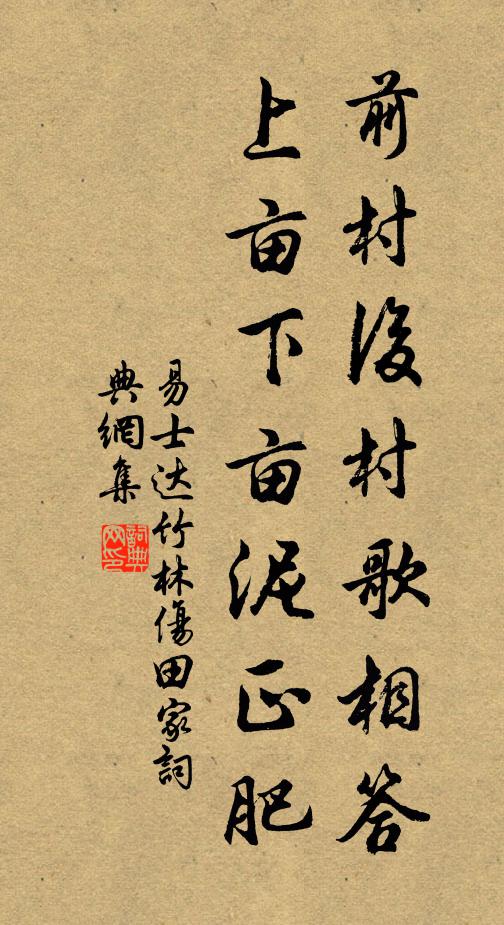 前村後村歌相答
上亩下亩泥正肥
易士达竹林傷田家詞
典網集
詞典網印